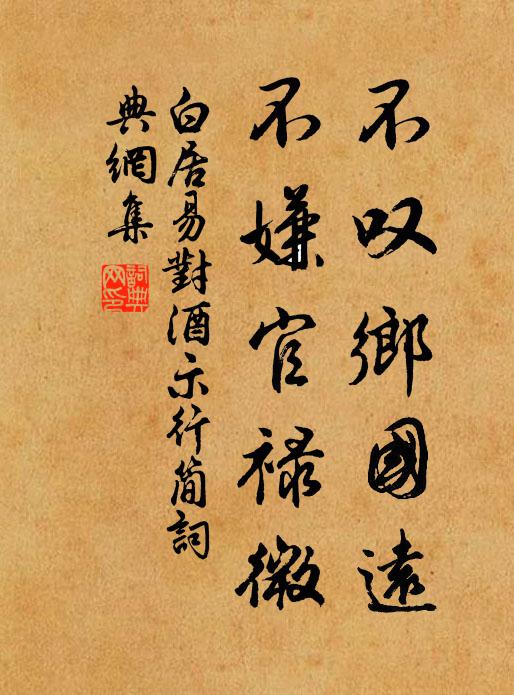 不叹鄉國遠
不嫌官禄微
白居易對酒示行簡詞
典網集
詞典
网印